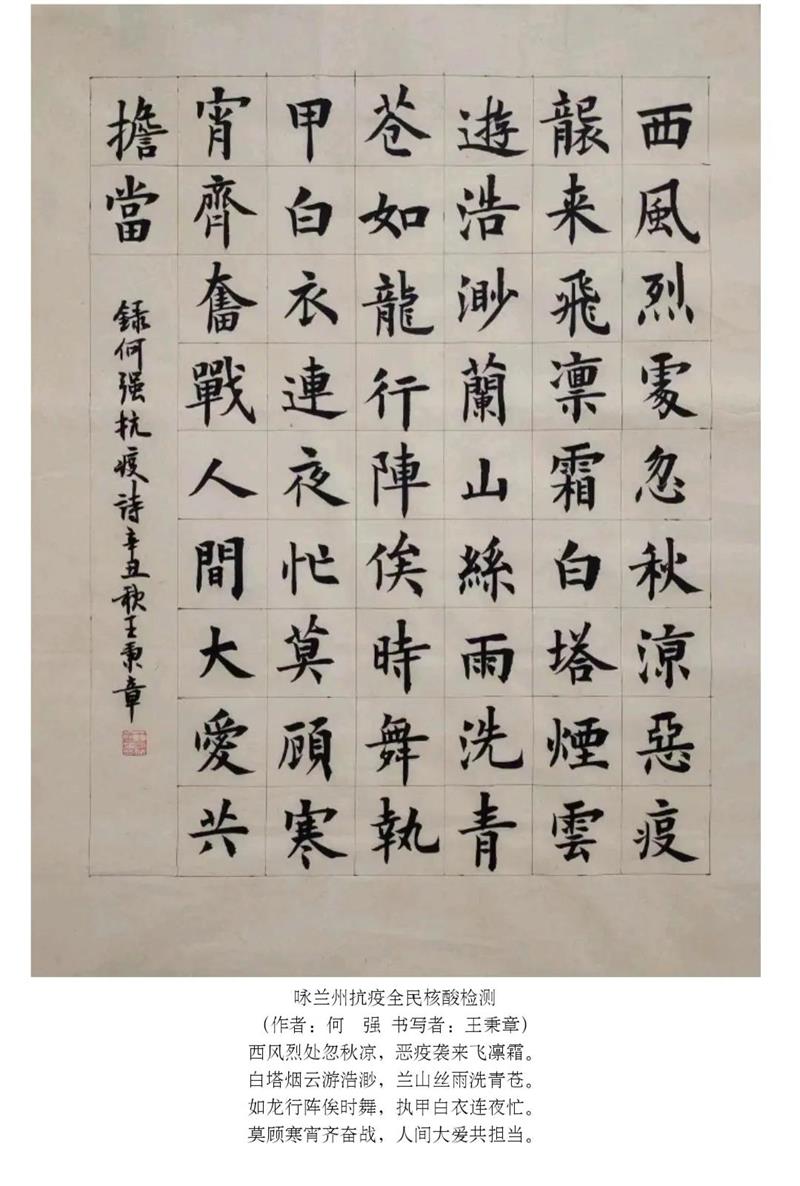 西風烈處忽秋涼惡疫
襲来飛凛霜白塔煙雲
遊浩渺蘭山絲雨洗青
苍如龍行陣俟時舞執
甲白衣連夜忙莫顧寒
宵齊奮戰人間大愛共
擔當
録何强抗疫詩辛丑秋王秉章
咏兰州抗疫全民核酸检测
（作者：何 强 书写者：王秉章）
西风烈处忽秋凉，恶疫袭来飞凛霜。
白塔烟云游浩渺，兰山丝雨洗青苍。
如龙行阵俟时舞，执甲白衣连夜忙。
莫顾寒宵齐奋战，人间大爱共担当。